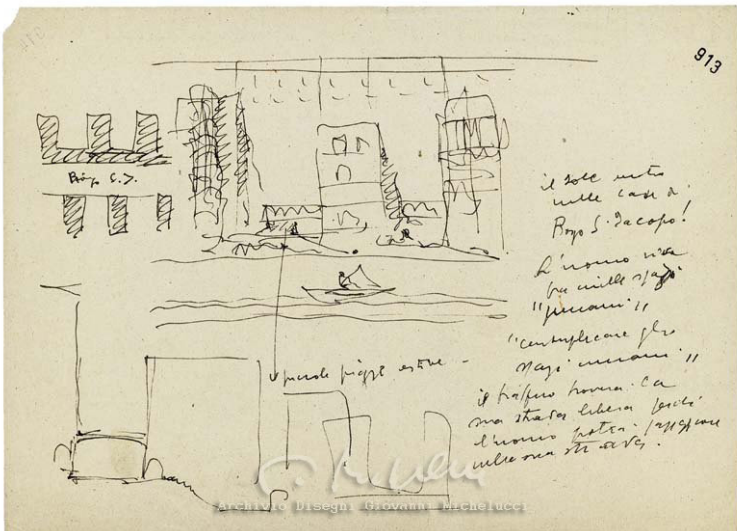 913
Borgo S. J.
il sole entra
nelle case di
Borgo S. Jacopo!
L'uomo vive
fra mille spazi
"umani"
"centuplicare gli
spazi umani"
piccole piazze estive -
il traffico troverà la
sua strada libera perché
l'uomo potrà passeggiare
nella sua strada.
Archivio Disegni Giovanni Michelucci